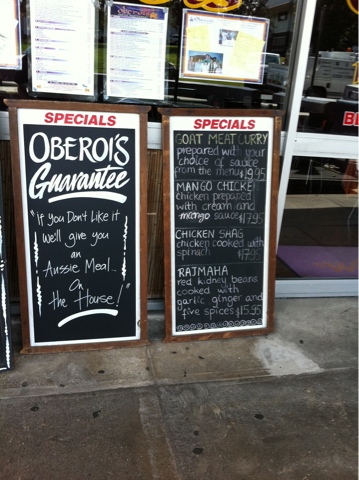 SPECIALS
OBEROI'S
Guarantee
"if you Don't Like it
we'll give you
an
Aussie Meal..
On
the House!"
SPECIALS
GOAT MEAT CURRY
prepared with your
choice of sauce
from the menu $19.95
MANGO CHICKEN
chicken prepared
with cream and
mango sauce $17.95
CHICKEN SHAG
chicken cooked with
spinach $17.95
RAJMAHA
red kidney beans
cooked with
garlic ginger and
five spices $15.95